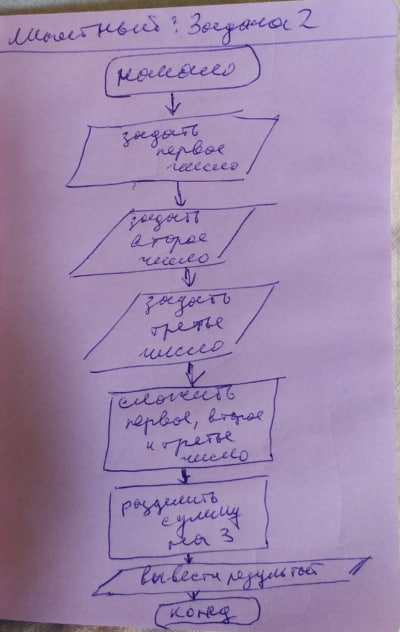 : Задача 2
начало
задать
первое
число
задать
второе
число
задать
третье
число
сложить
первое, второе
и третье
число
разделить
сумму
на 3
вывести результат
конец